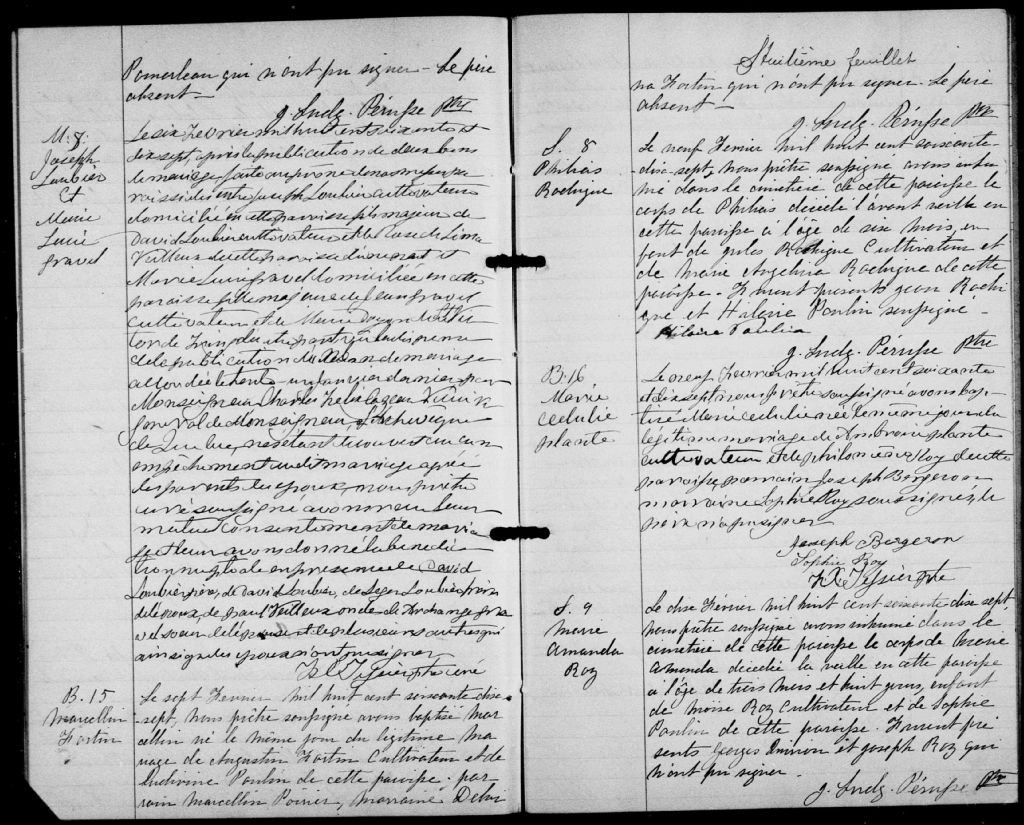 Pomerleau qui n'ont pu signer - Le père
absent -
J. Ludg. Pérusse Ptre
M. 8.
Joseph
Loubier
Et
Marie
Lucie
gravel
Le six Fevrier mil huit cent soixante et
dix sept, après la publication de deux bans
de mariage faite au prône de nos messes pa
roissiales entre Joseph Loubier cultivateur
domicilié en cette paroisse fils majeur de
David Loubier cultivateur et de Rose de Lima
Veilleux de cette paroisse d'une part et
Marie Lucie gravel domiciliée en cette
paroisse fille majeure de Jean gravel
cultivateur et de Marie
d'autre part vu la dispense
de la publication du ban de mariage
accordée le trente un janvier dernier par
Monseigneur Charles Felix Cazeau Vicaire
général de Monseigneur L'Archevêque
de Québec, ne s'étant découvert aucun
empêchement au dit mariage après
les parents des époux, nous prêtre
curé soussigné avons reçu leur
mutuel consentement de mariage
et leur avons donné la bénédic
tion nuptiale en présence de David
Loubier père, de David Loubier, de Leger Loubier frère
de l'époux, de paul Veilleux oncle de Archange gra
vel soeur de l'épouse et de plusieurs autres qui
ainsi que les époux n'ont pu signer
curé
B. 15
Marcellin
Fortin
Le sept Fevrier mil huit cent soixante dix-
sept, nous prêtre soussigné avons baptisé Mar
cellin né le même jour du legitime ma
riage de Augustin Fortin Cultivateur et de
Ludivine Poulin de cette paroisse. par
rain Marcellin Poirier, marraine Delvi
Huitième feuillet
na Fortin qui n'ont pu signer. Le père
absent -
J. Ludg. Pérusse Ptre
S. 8
Philias
Rodrigue
Le neuf Fevrier mil huit cent soixante-
dix-sept, nous prêtre soussigné avons inhu
mé dans le cimetière de cette paroisse le
corps de Philias décédé l'avant veille en
cette paroisse à l'âge de six mois, en
fant de Jules Rodrigue Cultivateur et
de Marie Angelina Rodrigue de cette
paroisse. Furent presents Jean Rodri
gue et Hilaire Poulin soussigné -
Hilaire Poulin
J. Ludg. Pérusse Ptre
B. 16
Marie
Cedulie
plante
Le neuf Fevrier mil huit cent soixante
et dix sept nous prêtre soussigné avons bap
tisé Marie Cedulie née le même jour du
légitime mariage de Ambroise plante
cultivateur et de philomène Roy de cette
paroisse, parrain Joseph Bergeron
marraine Sophie Roy soussignés, le
père n'a pu signer
Joseph Bergeron
Sophie Roy
Ptre
S. 9
Marie
Amanda
Roy
Le dix Février mil huit cent soixante dix sept
nous prêtre soussigné avons inhumé dans le
cimetière de cette paroisse le corps de Marie
Amanda décédée la veille en cette paroisse
à l'âge de trois mois et huit jours, enfant
de Moise Roy Cultivateur et de Sophie
Poulin de cette paroisse. Furent pre
sents Georges et Joseph Roy qui
n'ont pu signer -
J. Ludg. Pérusse Ptre